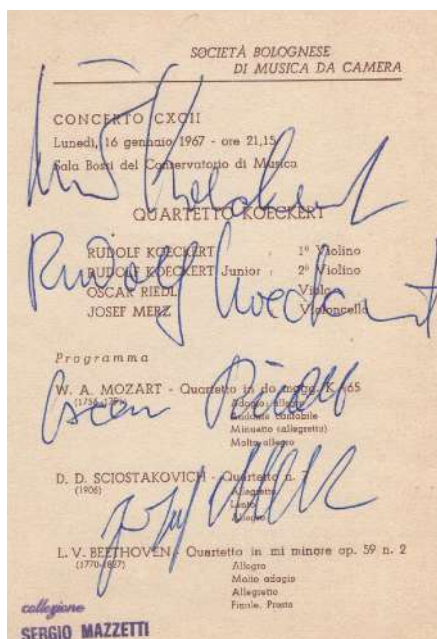 SOCIETÀ BOLOGNESE
DI MUSICA DA CAMERA
CONCERTO CXCII
Lunedì, 16 gennaio 1967 - ore 21,15
Sala Bossi del Conservatorio di Musica
Koeckert
QUARTETTO KOECKERT
RUDOLF KOECKERT 1º Violino
RUDOLF KOECKERT Junior 2º Violino
Rudolf Koeckert
OSCAR RIEDL Viola
JOSEF MERZ Violoncello
Programma
W. A. MOZART - Quartetto in do magg. K. 465
(1756-1791) Adagio, allegro
Andante cantabile
Oscar Riedl
Minuetto (allegretto)
Molto allegro
D. D. SCIOSTAKOVICH - Quartetto n. 7
(1906) Allegretto
Lento
Allegro
Josef Merz
L. V. BEETHOVEN - Quartetto in mi minore op. 59 n. 2
(1770-1827) Allegro
Molto adagio
Allegretto
Finale. Presto
collezione
SERGIO MAZZETTI